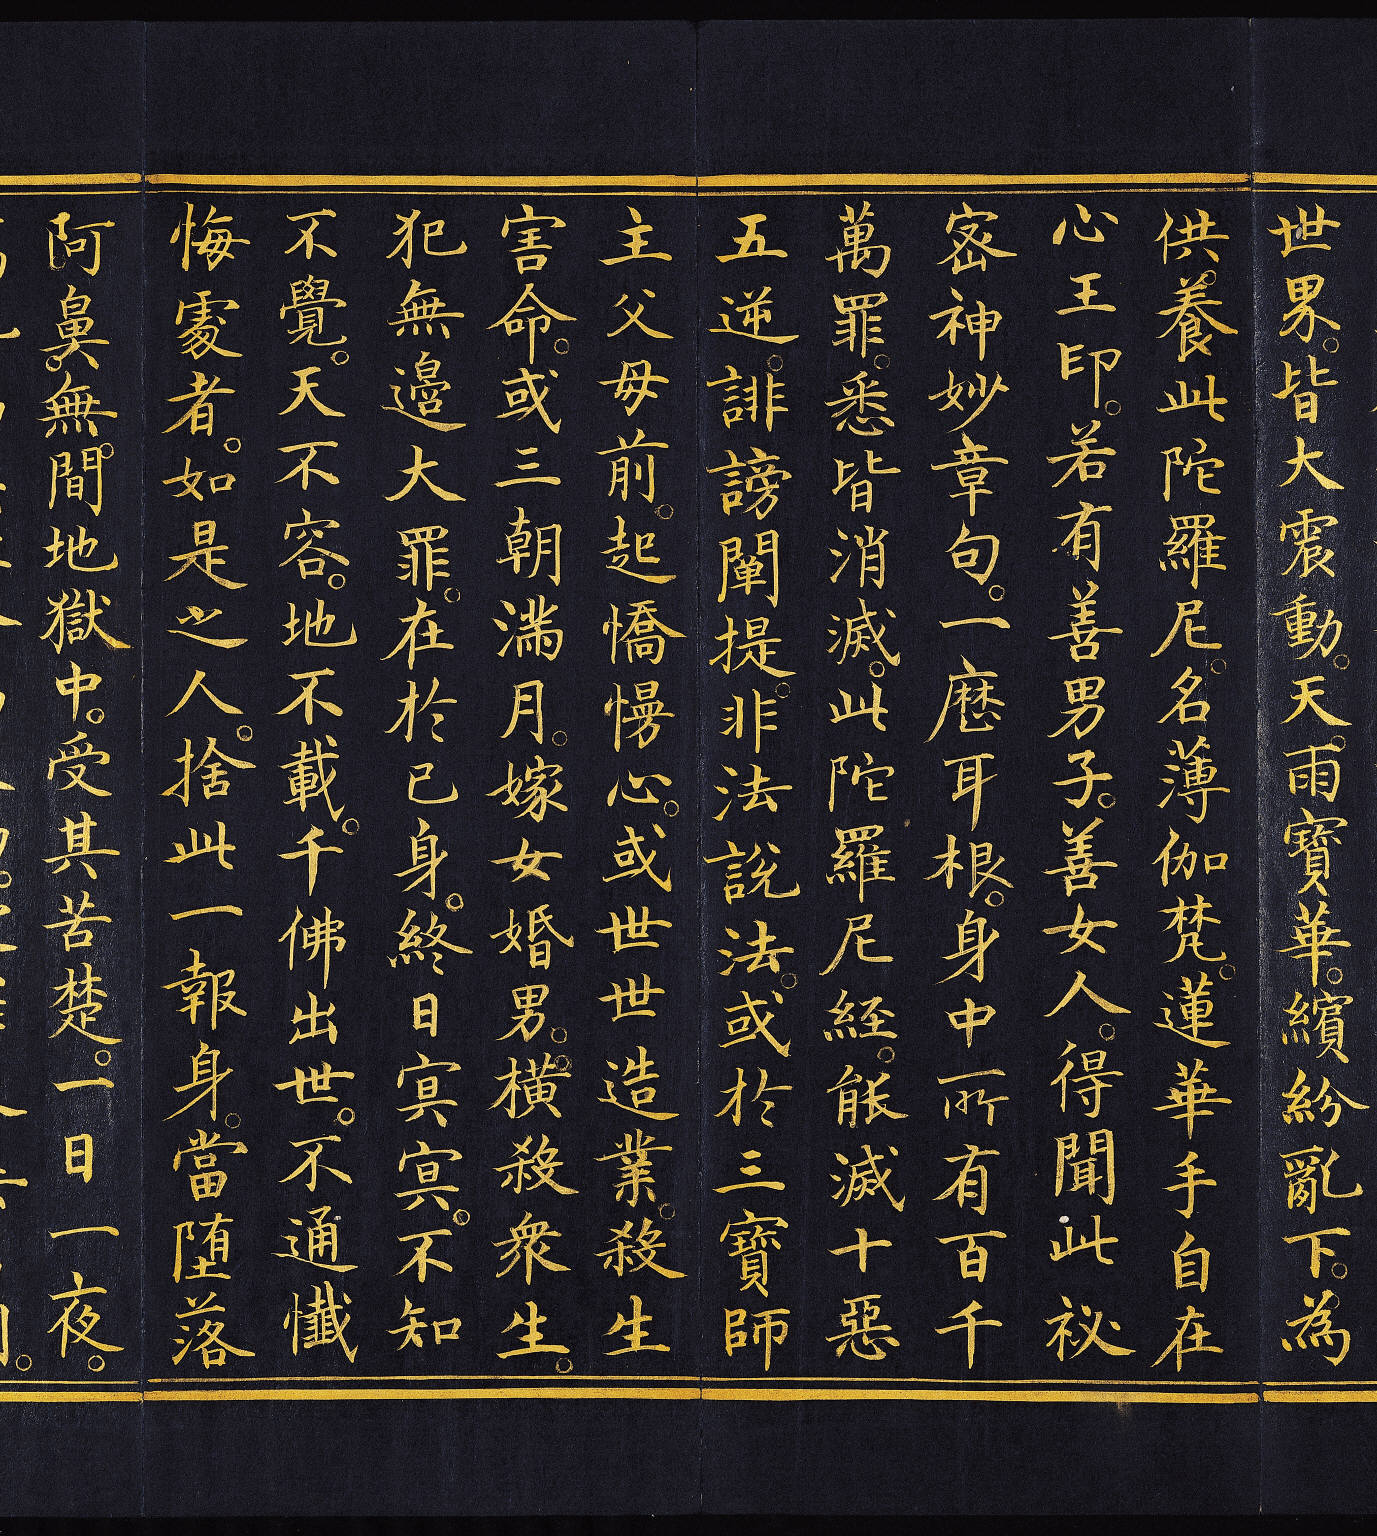 世界。皆大震動。天。雨寶華。繽紛亂下。為
供。養此陀羅尼。名薄伽梵。蓮華手自在
心王印。若有善男子。善女人。得聞此祕
密神妙章句。一歷耳根。身中所有百千
萬罪。悉皆消滅。此陀羅尼經。能滅十惡
五逆。誹謗闡提。非法說法。或於三寶師
主父母前。起憍慢心。或世世造業。殺生
害命。或三朝滿月。嫁女婚男。橫。殺衆生。
犯無邊大罪。在於己身。終日冥冥。不知
不覺。天不容。地不載。千佛出世。不通懺
悔處者。如是之人。捨此一報身。當墮落
阿鼻。無。間地獄中。受其苦楚。一日一夜。